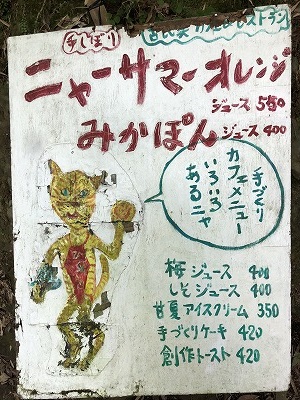 手しぼり
ニャーサマーオレンジ
ジュース 550
みかぽん ジュース 400
手づくり
カフェメニュー
いろいろ
あるニャ
梅ジュース 400
しそジュース 400
甘夏アイスクリーム 350
手づくりケーキ 420
創作トースト 420